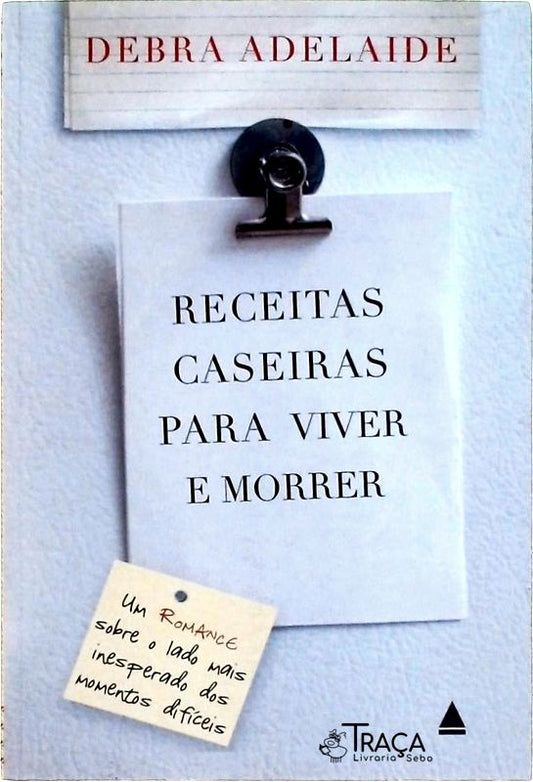 DEBRA ADELAIDE
RECEITAS
CASEIRAS
PARA VIVER
E MORRER
Um ROMANCE
sobre o lado mais
inesperado dos
momentos difíceis
TRAÇA
Livraria Sebo